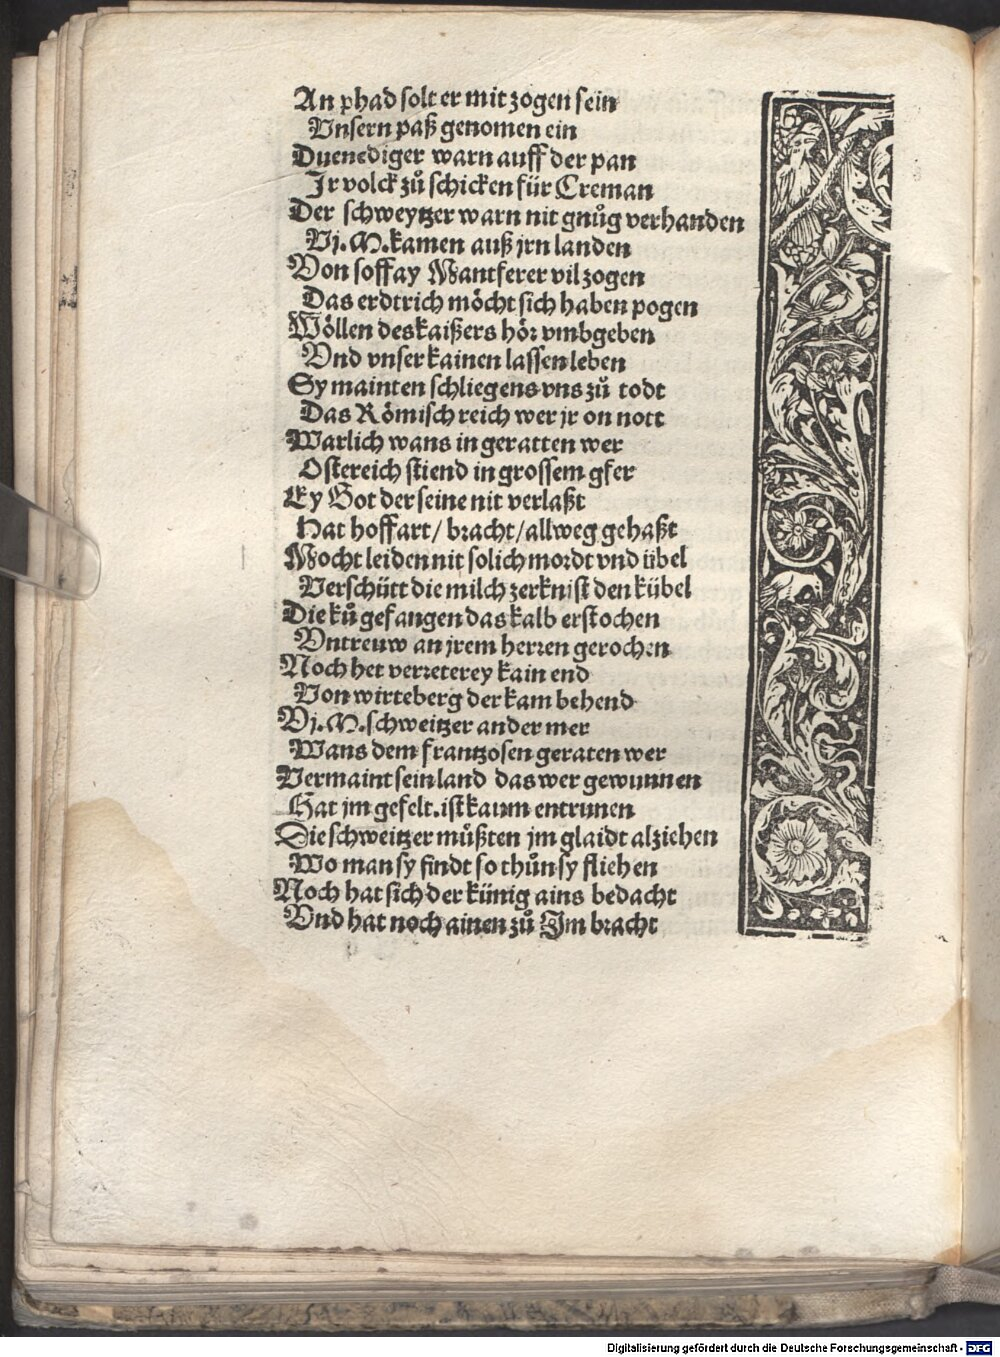 An phad solt er mit zogen sein
Vnsern paß genomen ein
Duenediger warn auff der pan
Jr volck zů schicken für Creman
Der schweytzer warn nit gnůg verhanden
Vj. M. kamen auß jrn landen
Von soffay Mantferer vil zogen
Das erdtrich möcht sich haben pogen
Wöllen des kaißers hör vmbgeben
Vnd vnser kainen lassen leben
Sy mainten schliegens vns zů todt
Das Römisch reich wer jr on nott
Warlich wans in geratten wer
Ostereich stiend in grossem gfer
Ey Got der seine nit verlaßt
Hat hoffart/ bracht/ allweg gehaßt
Mocht leiden nit solich mordt vnd übel
Verschütt die milch zerknist den kübel
Die ků gefangen das kalb erstochen
Vntreuw an jrem herren gerochen
Noch het verreterey kain end
Von wirteberg der kam behend
Vj. M. schweitzer ander mer
Wans dem frantzosen geraten wer
Vermaint sein land das wer gewunnen
Hat jm gefelt. ist kaum entrunen
Die schweitzer müßten jm glaidt alziehen
Wo man sy findt so thůn sy fliehen
Noch hat sich der künig ains bedacht
Vnd hat noch ainen zů Jm bracht
Digitalisierung gefördert durch die Deutsche Forschungsgemeinschaft - DFG